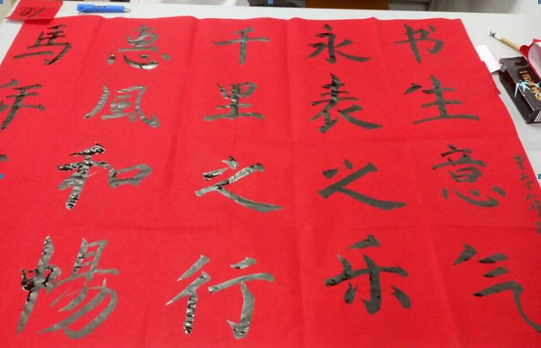 书生意气
永表之乐
千里之行
惠風和暢
馬年